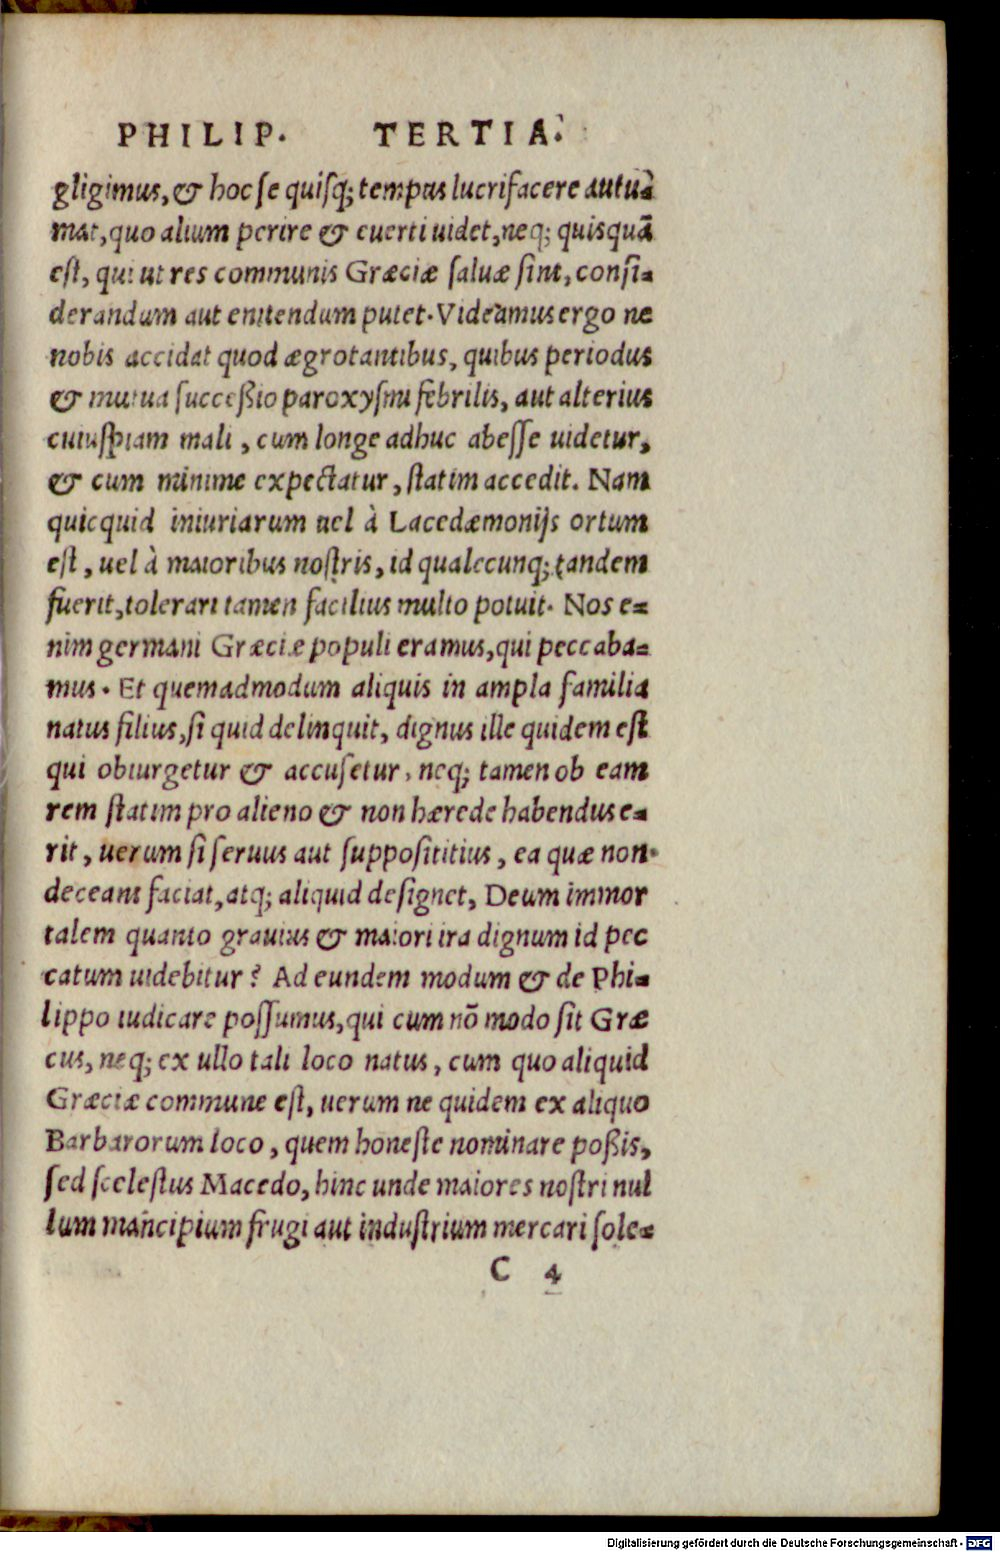 PHILIP. TERTIA.
gligimus, & hoc se quisq; tempus lucrifacere autu-
mat, quo alium perire & euerti uidet, neq; quisquā
est, qui ut res communis Græciæ saluæ sint, consi-
derandum aut enitendum putet. Videamus ergo ne
nobis accidat quod ægrotantibus, quibus periodus
& mutua successio paroxysmi febrilis, aut alterius
cuiuspiam mali, cum longe adhuc abesse uidetur,
& cum minime expectatur, statim accedit. Nam
quicquid iniuriarum uel à Lacedæmonijs ortum
est, uel à maioribus nostris, id qualecunq; tandem
fuerit, tolerari tamen facilius multo potuit. Nos e-
nim germani Græciæ populi eramus, qui peccaba-
mus. Et quemadmodum aliquis in ampla familia
natus filius, si quid delinquit, dignus ille quidem est
qui obiurgetur & accusetur, neq; tamen ob eam
rem statim pro alieno & non hærede habendus e-
rit, uerum si seruus aut supposititius, ea quæ non
deceant faciat, atq; aliquid designet, Deum immor
talem quanto grauius & maiori ira dignum id pec
catum uidebitur? Ad eundem modum & de Phi-
lippo iudicare possumus, qui cum nō modo sit Græ
cus, neq; ex ullo tali loco natus, cum quo aliquid
Græciæ commune est, uerum ne quidem ex aliquo
Barbarorum loco, quem honeste nominare possis,
sed scelestus Macedo, hinc unde maiores nostri nul
lum mancipium frugi aut industrium mercari sole-
C 4
Digitalisierung gefördert durch die Deutsche Forschungsgemeinschaft - DFG